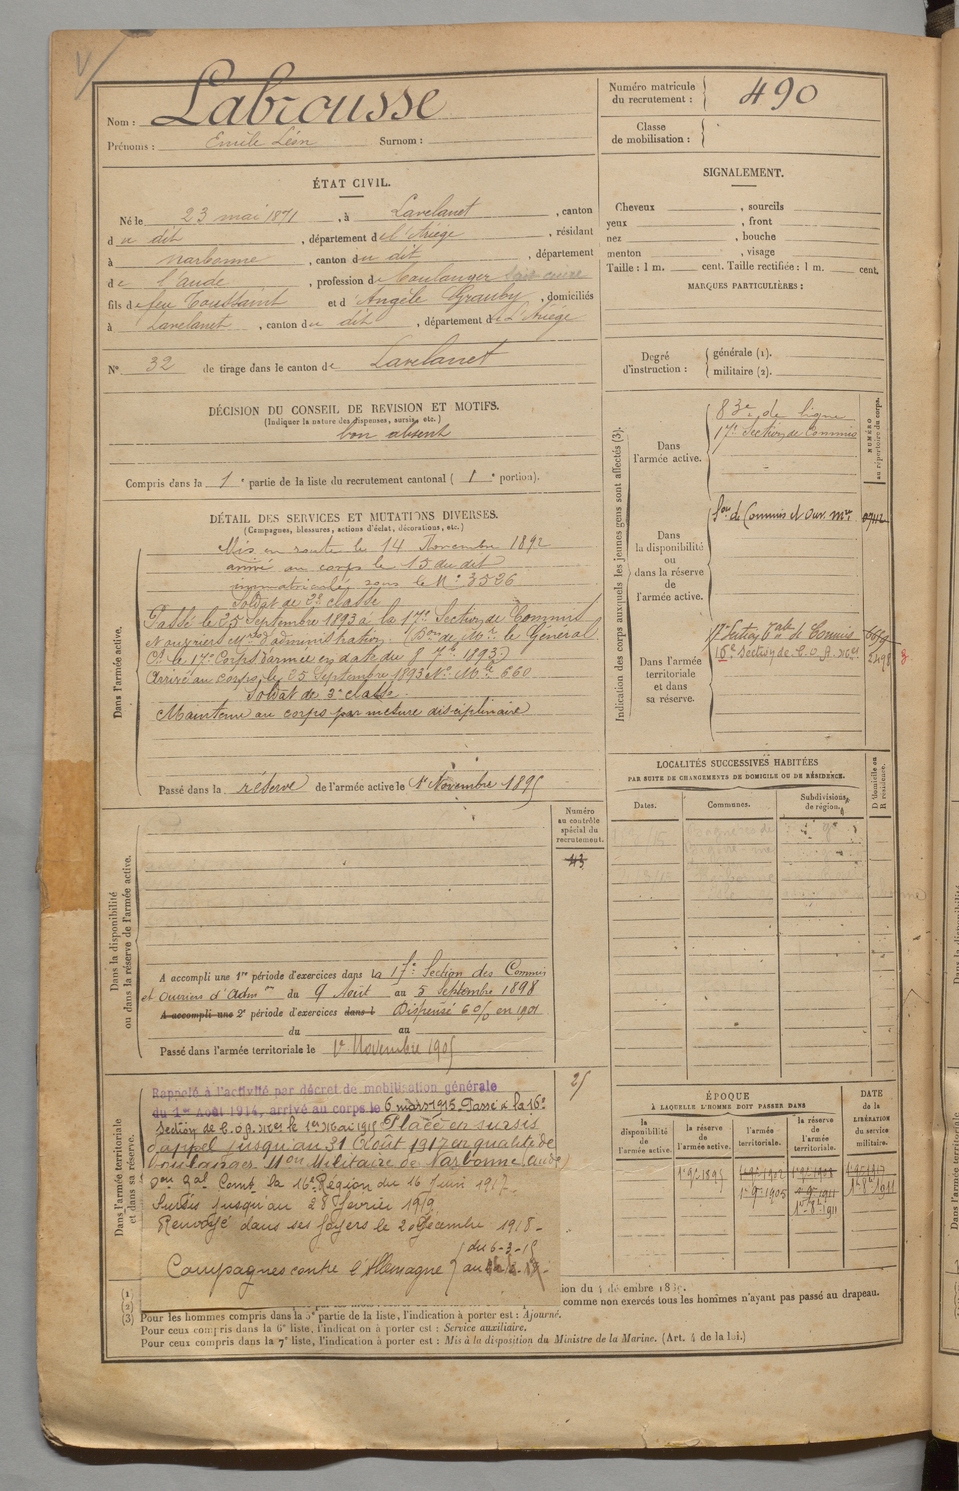 Nom : Labrousse
Prénoms : Emile Léon Surnom :
Numéro matricule
du recrutement : 490
Classe
de mobilisation :
ÉTAT CIVIL.
Né le 23 mai 1871, à Lavelanet, canton
du dit, département de l'Ariège, résidant
à Narbonne, canton du dit, département
de l'Aude, profession de boulanger
fils de feu Toussaint et d'Angèle Grauby, domiciliés
à Lavelanet, canton du dit, département de l'Ariège
N° 32 de tirage dans le canton de Lavelanet
DÉCISION DU CONSEIL DE REVISION ET MOTIFS.
(Indiquer la nature des dispenses, sursis, etc.)
bon absent
Compris dans la 1e partie de la liste du recrutement cantonal (1e portion).
DÉTAIL DES SERVICES ET MUTATIONS DIVERSES.
(Campagnes, blessures, actions d'éclat, décorations, etc.)
Dans l'armée active.
Mis en route le 14 Novembre 1892
arrivé au corps le 15 du dit
immatriculé sous le N° 3536
Soldat de 2e classe
Passé le 25 Septembre 1893 à la 17e Section de Commis
N ouvriers Mres d'administration. (Don de Mr le Général
Ct le 17e Corps d'armée en date du 8 7bre 1893)
Arrivé au corps le 25 Septembre 1893 N° Mle 660
Soldat de 2e classe.
Maintenu au corps par mesure disciplinaire
Passé dans la réserve de l'armée active le 1er Novembre 1895
Dans la disponibilité
ou dans la réserve de l'armée active.
Numéro
au contrôle
spécial du
recrutement.
43
A accompli une 1re période d'exercices dans la 17e Section des Commis
et ouvriers d'adm on du 9 Août au 5 Septembre 1898
A accompli une 2e période d'exercices dans l Dispensé 6 % en 1901
du au
Passé dans l'armée territoriale le 1er Novembre 1905
Dans l'armée territoriale
et dans sa réserve.
Rappelé à l'activité par décret de mobilisation générale
du 1er Août 1914, arrivé au corps le 6 mars 1915. Passé à la 16e
Section de C.O.A. le 1er Mai 1915 Placé en sursis
d'appel jusqu'au 31 Août 1917 en qualité de
boulanger Mon Militaire de Narbonne (Aude)
Don Gal Comt la 16e Région du 16 Juin 1917
Sursis jusqu'au 28 février 1919
Renvoyé dans ses foyers le 20 Décembre 1918 -
Campagnes contre l'Allemagne du 6-3-15
au
SIGNALEMENT.
Cheveux , sourcils
yeux , front
nez , bouche
menton , visage
Taille : 1 m. cent. Taille rectifiée : 1 m. cent.
MARQUES PARTICULIÈRES :
Degré
d'instruction :
générale (1).
militaire (2).
Indication des corps auxquels les jeunes gens sont affectés (3).
NUMÉRO
au répertoire du corps.
Dans
l'armée active.
83e de ligne
17e Section de Commis
Dans
la disponibilité
ou
dans la réserve
de
l'armée active.
Son de Commis N Ouv. Mres
Dans l'armée
territoriale
et dans
sa réserve.
17e Section tale de Commis
16e Section de C.O.A.
LOCALITÉS SUCCESSIVES HABITÉES
PAR SUITE DE CHANGEMENTS DE DOMICILE OU DE RÉSIDENCE.
Dates. Communes. Subdivisions de région. D Domicile ou R résidence.
ÉPOQUE
À LAQUELLE L'HOMME DOIT PASSER DANS
DATE
de la
LIBÉRATION
du service
militaire.
la disponibilité de l'armée active. la réserve de l'armée active. l'armée territoriale. la réserve de l'armée territoriale.
1er 9bre 1895
1er 9bre 1905 1er 8bre 1911 1er 8bre 1911
ion du 4 décembre 1889.
comme non exercés tous les hommes n'ayant pas passé au drapeau.
(1)
(2)
(3) Pour les hommes compris dans la 5e partie de la liste, l'indication à porter est : Ajourné.
Pour ceux compris dans la 6e liste, l'indication à porter est : Service auxiliaire.
Pour ceux compris dans la 7e liste, l'indication à porter est : Mis à la disposition du Ministre de la Marine. (Art. 4 de la loi.)